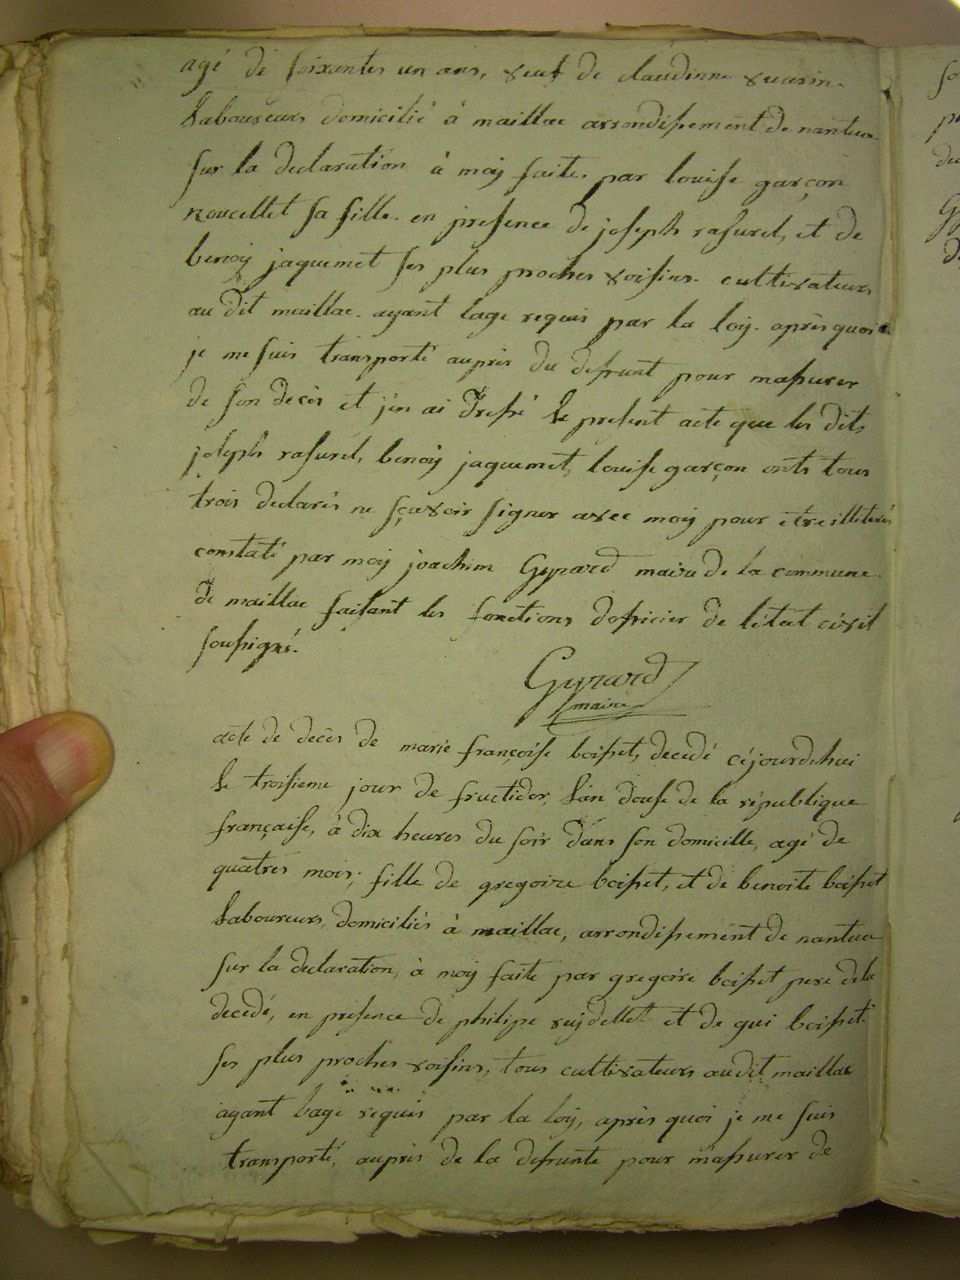 agé de soixantes un ans, veuf de claudinne vuarin.
Laboureurs domicilié à maillac arrondissement de nantua
sur la declaration à moy faite. par louise garçon
noucellet sa fille. en presence de joseph rasurel, et de
benoy jaquemet ses plus proches voisins. cultivateurs
au dit maillac. ayant lage requis par la loy. après quoi
je me suis transporté auprès du defrunt pour massurer
de son decès et j'en ai dressé le present acte que les dits
joseph rasurel, benoy jaquemet, louise garçon onts tous
trois declarés ne sçavoir signer avec moy pour être illiterés
constaté par moy joachim Gyrard maire de la commune
de maillac faisant les fonctions dofficier de l'état civil
soussigné.
Gyrard
maire
acte de decès de marie françoise boisset, decedé cejourdehui
le troisieme jour de fructidor, l'an douse de la république
française, à dix heures du soir dans son domicille, agé de
quatres mois, fille de gregoire boisset, et de benoite boisset
Laboureurs, domiciliés à maillac, arrondissement de nantua
sur la declaration, à moy faite par gregoire boisset pere de la
decedé, en presence de philipe vuydellet et de gui boisset
ses plus proches voisins, tous cultivateurs audit maillac
ayant lage requis par la loy, après quoi je me suis
transporté, auprès de la defrunte pour massurer de